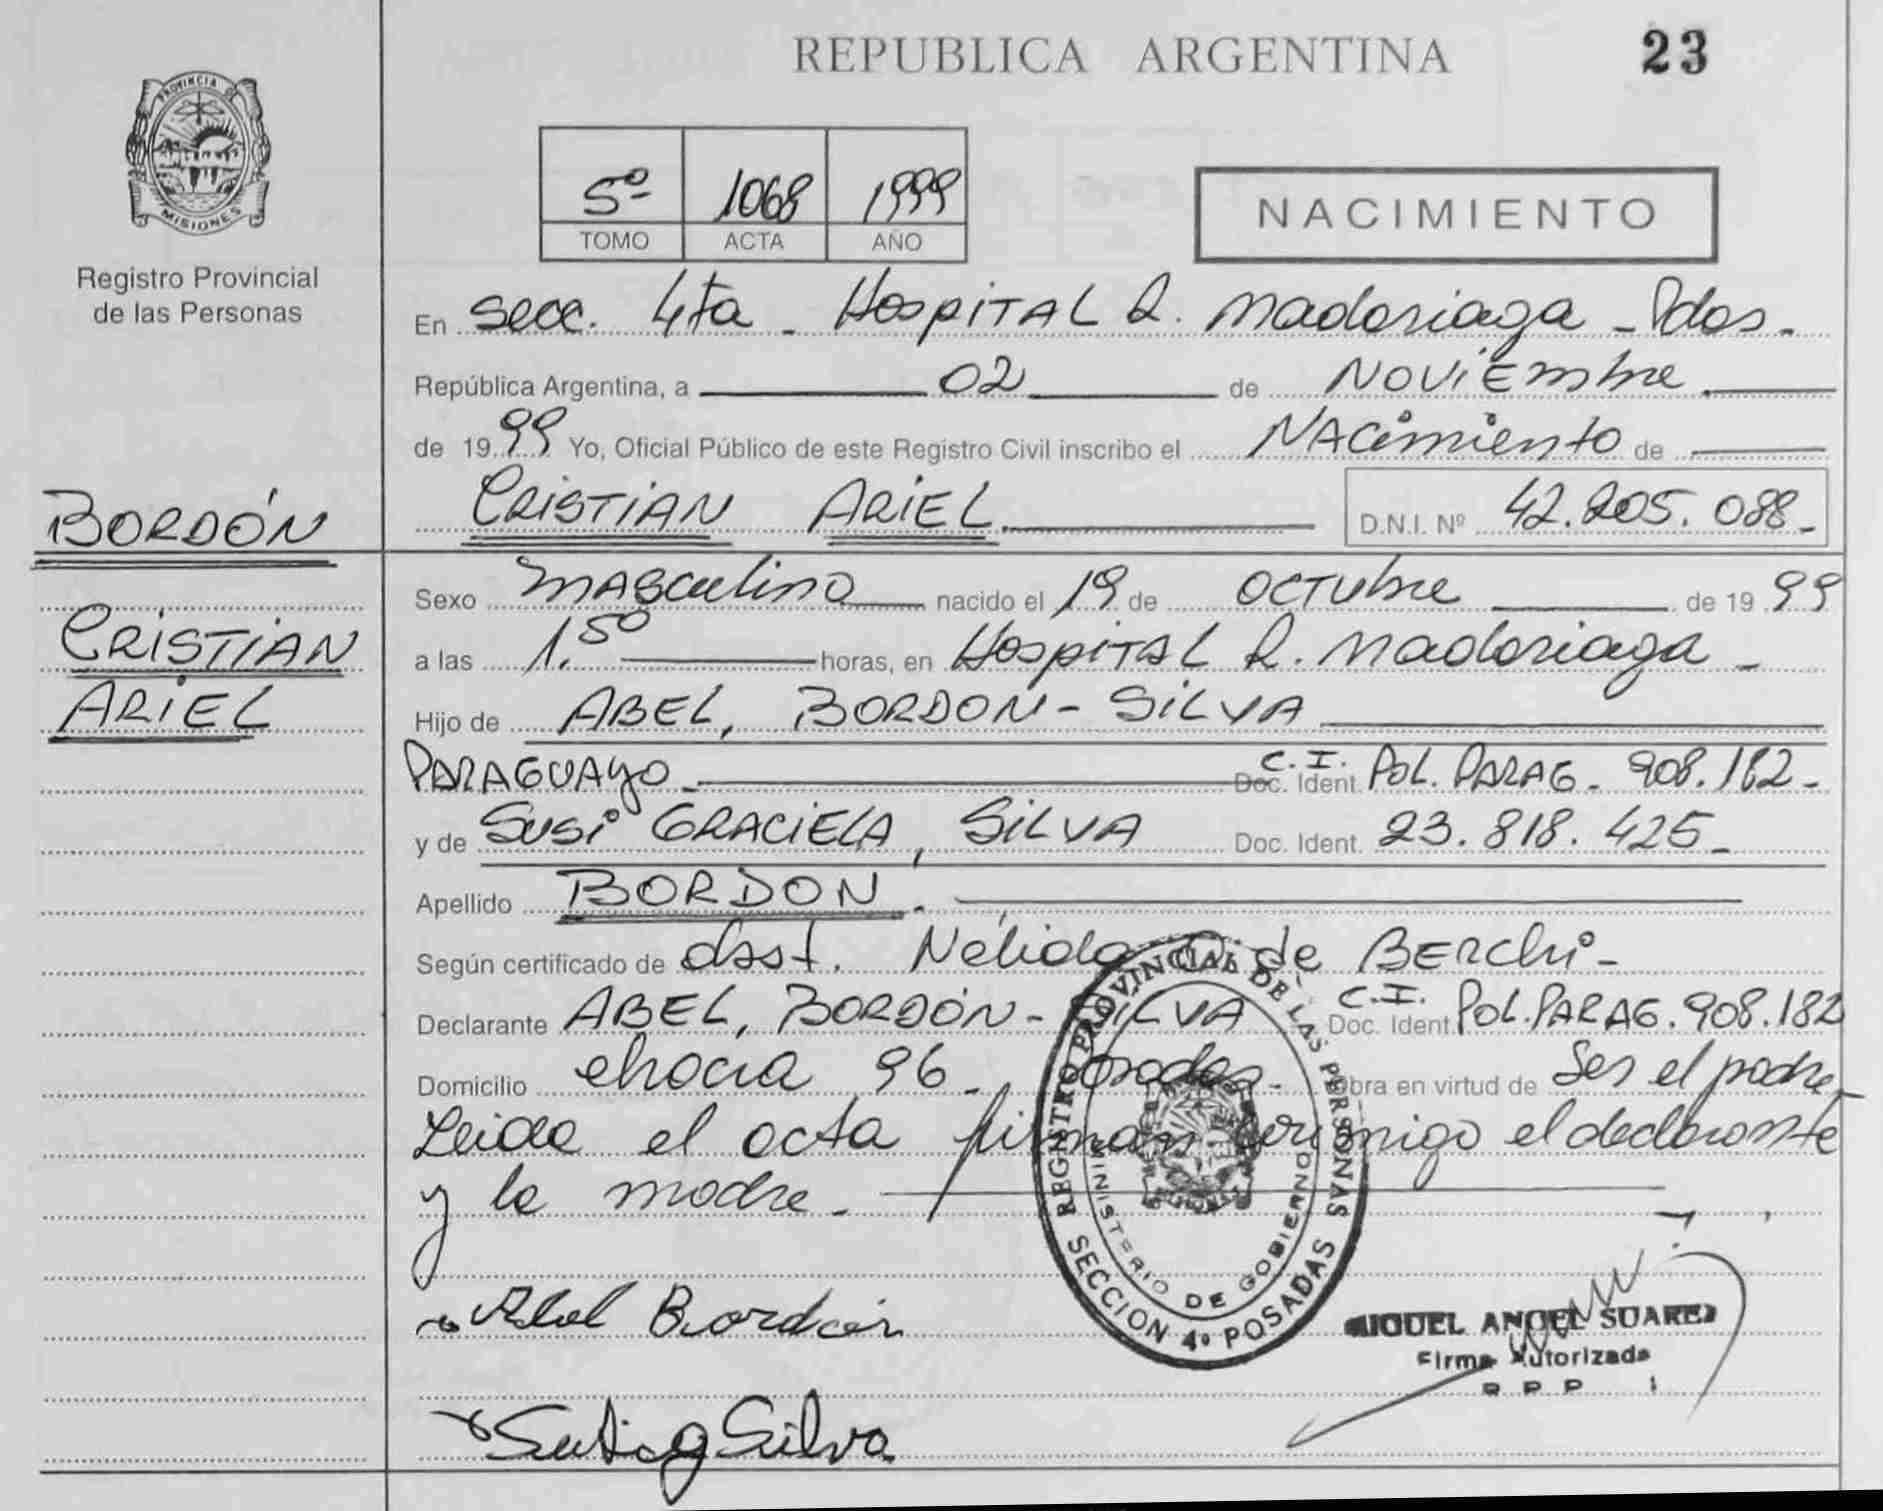 REPUBLICA ARGENTINA 23
PROVINCIA DE
MISIONES
Registro Provincial
de las Personas
5º 1068 1999
TOMO ACTA AÑO
NACIMIENTO
En Secc. 4ta - Hospital R. Madariaga - Pdas.
República Argentina, a 02 de Noviembre
de 1999 Yo, Oficial Público de este Registro Civil inscribo el Nacimiento de
CRISTIAN ARIEL D.N.I. Nº 42.205.088-
BORDÓN
CRISTIAN
ARIEL
Sexo Masculino nacido el 19 de Octubre de 1999
a las 1.50 horas, en Hospital R. Madariaga -
Hijo de ABEL, BORDON - SILVA
PARAGUAYO C.I. Doc. Ident. Pol. PARAG. 908.182-
y de SUSI GRACIELA, SILVA Doc. Ident. 23.818.425-
Apellido BORDON.
Según certificado de Obst. Nélida de BERchi-
Declarante ABEL, BORDÓN - SILVA C.I. Doc. Ident. Pol. PARAG. 908.182
Domicilio chacra 96 - Posadas - Obra en virtud de Ser el padre
Leida el acta firman conmigo el declarante
y la madre.
REGISTRO PROVINCIAL DE LAS PERSONAS
MINISTERIO DE GOBIERNO
SECCION 4º POSADAS
Abel Bordón
MIGUEL ANGEL SUAREZ
Firma Autorizada
Silva